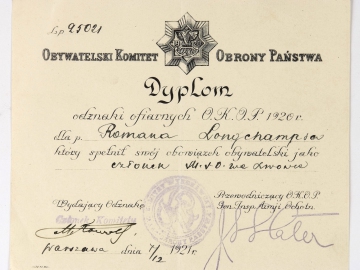 L.p. 25021
OBYWATELSKI KOMITET OBRONY PAŃSTWA
Dyplom
odznaki ofiarnych O.K.O.P. 1920 r.
dla p. Romana Longchamps'a
który spełnił swój obowiązek obywatelski jako
członek M.S.O. we Lwowie
Wydający Odznakę Przewodniczący O.K.O.P.
Członek Komitetu Gen. Insp. Armji Ochotn.
Warszawa dnia 7/12 1921 r.